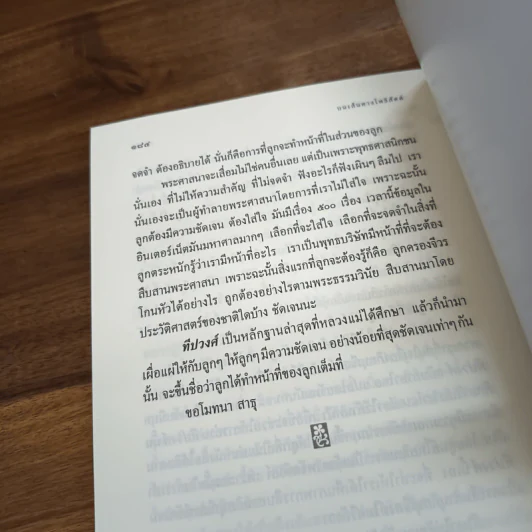 บนเส้นทางโพธิสัตต์
๑๘๕
จดจำ ต้องอธิบายได้ นั่นก็คือการที่ลูกจะทำหน้าที่ในส่วนของลูก
พระศาสนาจะเสื่อมไม่ใช่คนอื่นเลย แต่เป็นเพราะพุทธศาสนิกชน
นั่นเอง ที่ไม่ให้ความสำคัญ ที่ไม่จดจำ ฟังอะไรก็ฟังเผินๆ ลืมไป เรา
นั่นเองจะเป็นผู้ทำลายพระศาสนาโดยการที่เราไม่ใส่ใจ เพราะฉะนั้น
ลูกต้องมีความชัดเจน ต้องใส่ใจ มันมีเรื่อง ๕๐๐ เรื่อง เวลานี้ข้อมูลใน
อินเตอร์เน็ตมันมหาศาลมากๆ เลือกที่จะใส่ใจ เลือกที่จะจดจำในสิ่งที่
ลูกตระหนักรู้ว่าเรามีหน้าที่อะไร เราเป็นพุทธบริษัทมีหน้าที่ที่จะต้อง
สืบสานพระศาสนา เพราะฉะนั้นสิ่งแรกที่ลูกจะต้องรู้ก็คือ ลูกครองจีวร
โกนหัวได้อย่างไร ลูกต้องอย่างไรตามพระธรรมวินัย สืบสานมาโดย
ประวัติศาสตร์ของชาติใดบ้าง ชัดเจนนะ
ทีปวงศ์ เป็นหลักฐานล่าสุดที่หลวงแม่ได้ศึกษา แล้วก็นำมา
เผื่อแผ่ให้กับลูกๆ ให้ลูกๆ มีความชัดเจน อย่างน้อยที่สุดชัดเจนเท่าๆ กัน
นั้น จะขึ้นชื่อว่าลูกได้ทำหน้าที่ของลูกเต็มที่
ขอโมทนา สาธุ